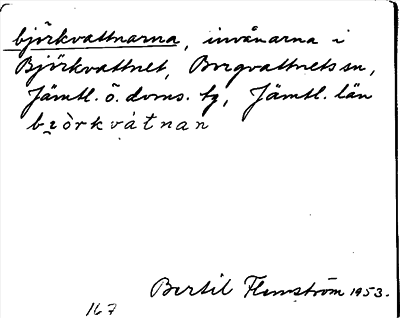 björkvattnarna, invånarna i
Björkvattnet, Borgvattnets sn,
Jämtl. ö. doms. tg, Jämtl. län
bi̯òrkvátnan
Bertil Flemström 1953.
167